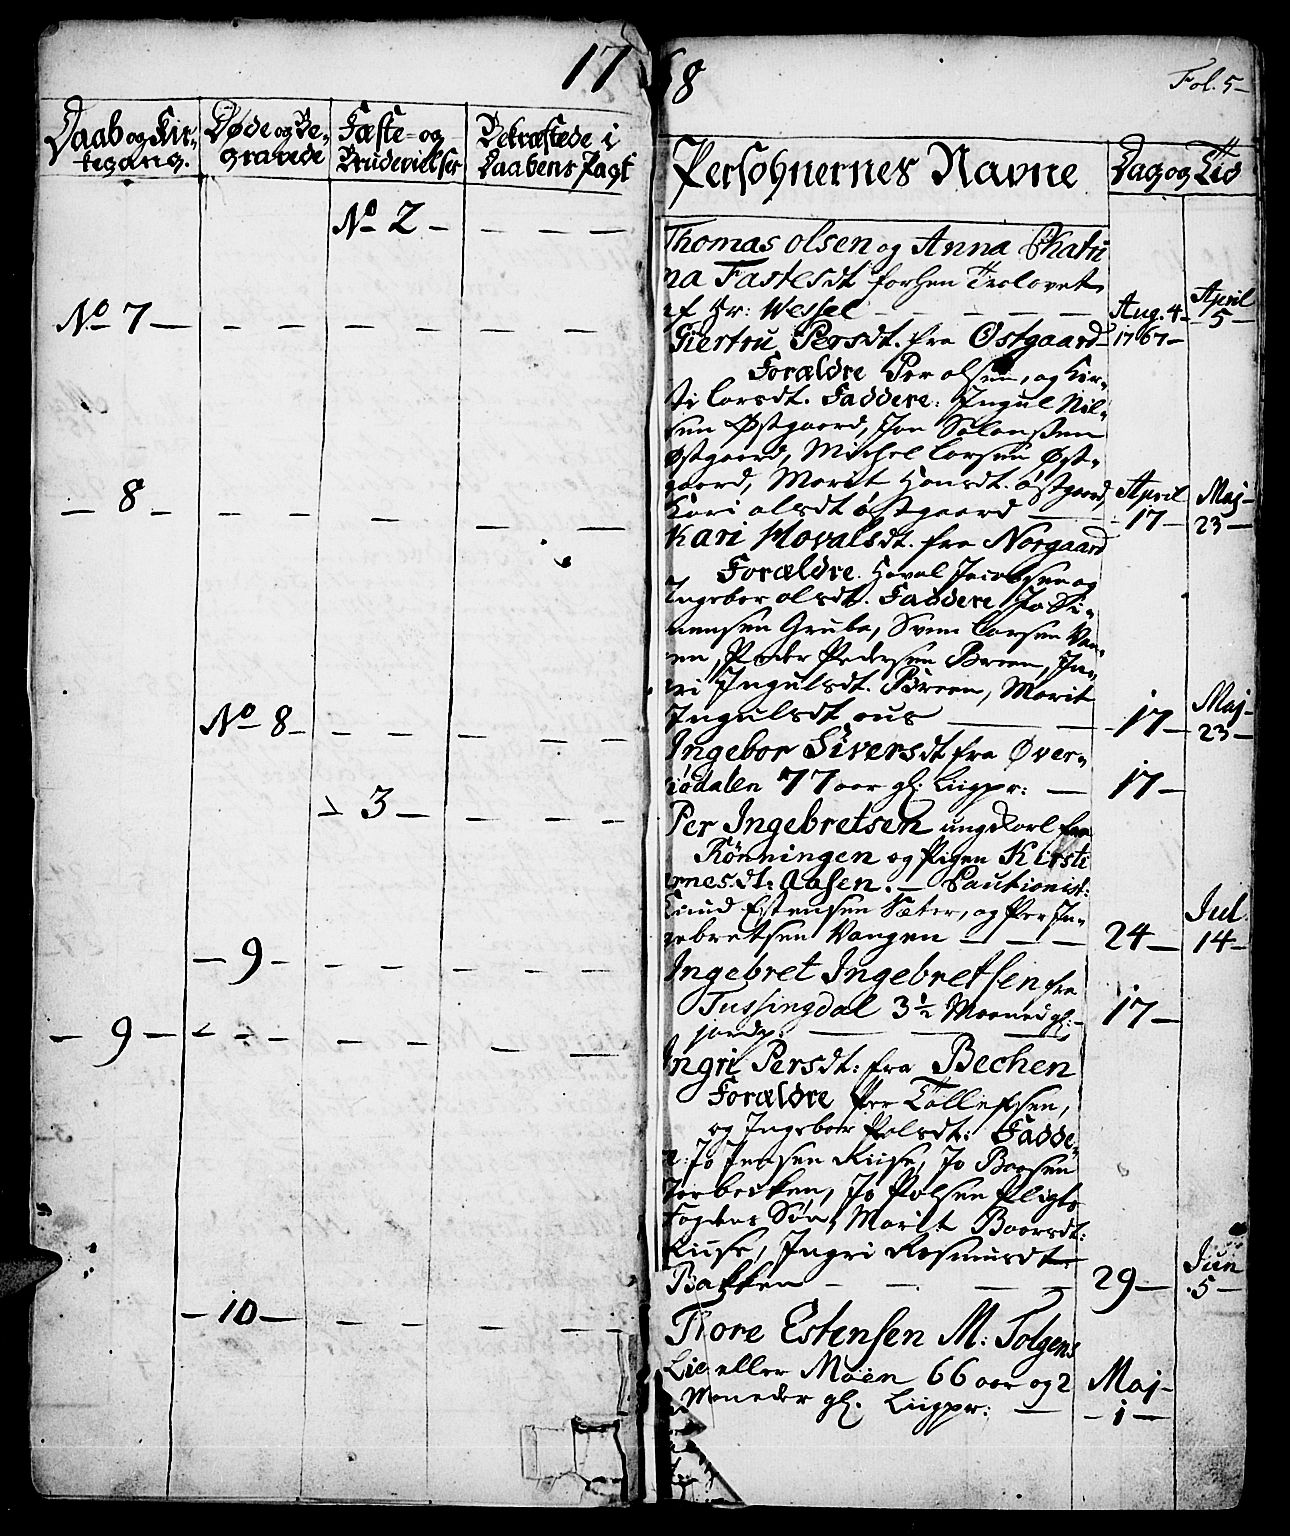 17 68
Fol. 5
Daab og Kir-
kegang.
Døde og Be-
gravede
Fæste- og
Brudevielser
Bekræftede i
Daabens Pagt
Persohnernes Navne
Dag og Tid
No 2
Thomas Olsen og Anna Chatri
na Fastesdt forhen Trolovet
af Hr: Wessel
Aug. 4
1767
April
5
No 7
Giertru Persdt. fra Østgaard
Forældre Per Olsen, og Kir-
sti Larsdt. Faddere: Ingul Nil-
sen Østgaard, Jon
Østgaard, Michel Larsen Øst-
gaard, Marit Hansdt. Østgaard,
Kari Olsdt Østgaard
April
17
Maj
23
8
Kari Hovalsdt. fra Norgaard
Forældre. Hoval Jacobsen og
Ingebor Olsdt. Faddere Jo Si-
mensen Grube, Sven Larsen Van-
en, Peder Pedersen Breen, In-
gri Ingulsdt. Breen, Marit
Ingulsdt aus
17
Maj
23
No 8
Ingebor Siversdt fra Øver-
siødalen 77 aar gl: Liigpr:
17
3
Per Ingebretsen ungkarl fra
Rønningen og Pigen Kirsti
Arnesdt: Aasen. Cautionist:
Knud Estensen Sæter, og Per In-
gebretsen Vangen
24
Jul.
14
9
Ingebret Ingebretsen fra
Tussingdal 3½ Maaned gl:
jordp:
17
9
Ingri Persdt: fra Bechen
Forældre Per Tollefsen,
og Ingebor Polsdt: Fadde-
r: Jo Jensen Riise, Jo Baarsen
Jo Polsen Pligts
Fogdens Søn, Marit Baarsdt:
Riise, Ingri Rasmusdt
Bakken
29
Jun
5
10
Thore Estensen M: Tolgens
Lie eller Moen 66 aar og 2
Maaneder gl. Liigpr:
Maj
1